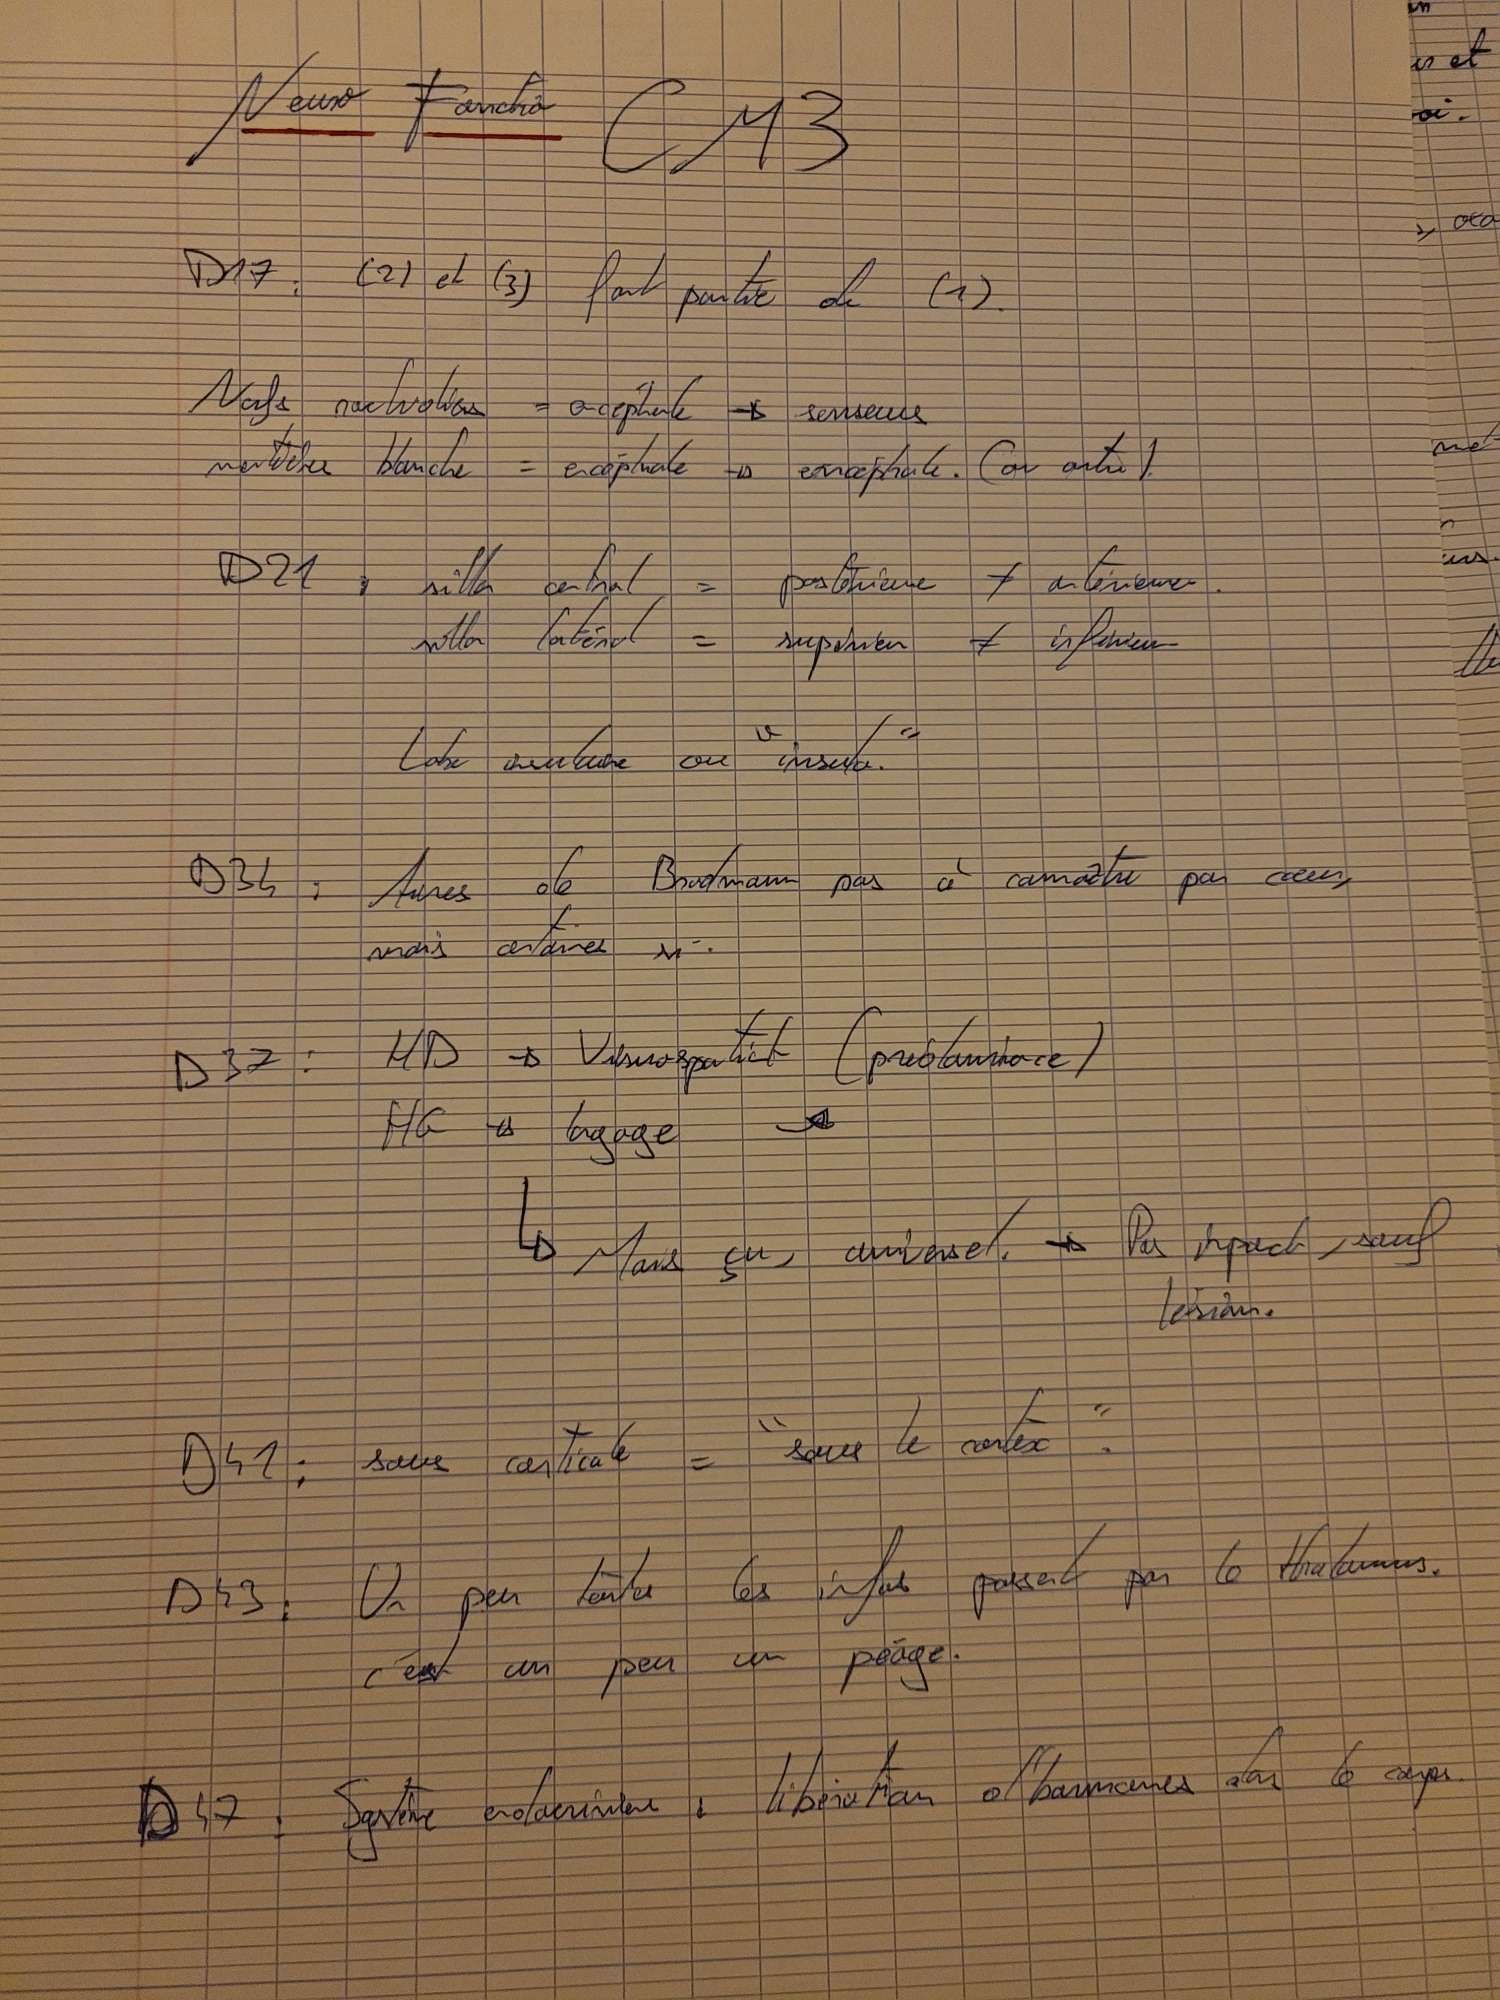 Neuro Fonctio CM3
D17 : (2) et (3) font partie de (1).
Nerfs = encéphale → senseurs
matière blanche = encéphale → encéphale. (ou entre).
D21 : sillon central = postérieure ≠ antérieure.
sillon latéral = supérieur ≠ inférieur
Lobe insulaire ou "insula."
D34 : Aires de Brodmann pas à connaître par cœur,
mais certaines si.
D37 : HD → Visuospatial (prédominance)
HG → langage
↳ Mais universel. → Pas impact, sauf
lésion.
D41 : sous corticale = "sous le cortex".
D43 : Un peu toutes les infos passent par le thalamus.
c'est un peu un péage.
D47 : Système endocrinien : libération d'hormones dans le corps.
un
us et
oi.